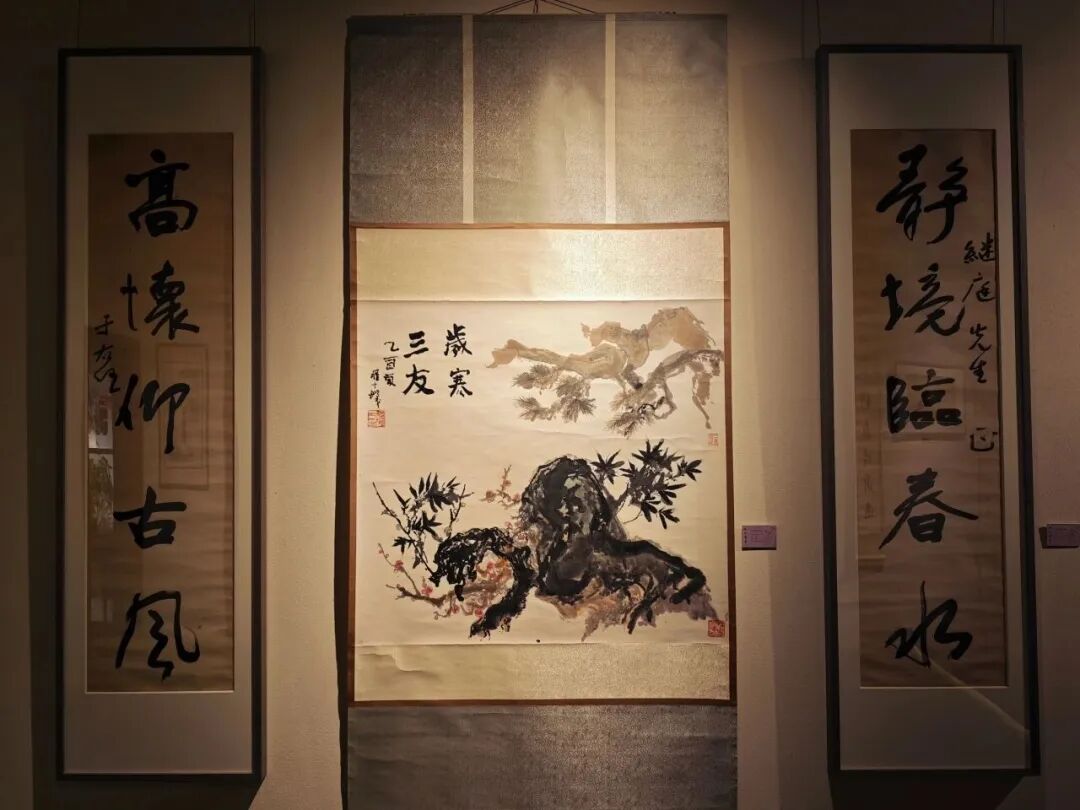 靜境臨春水
繼庭先生正
歲寒
三友
乙酉夏
高懷仰古風
于右任